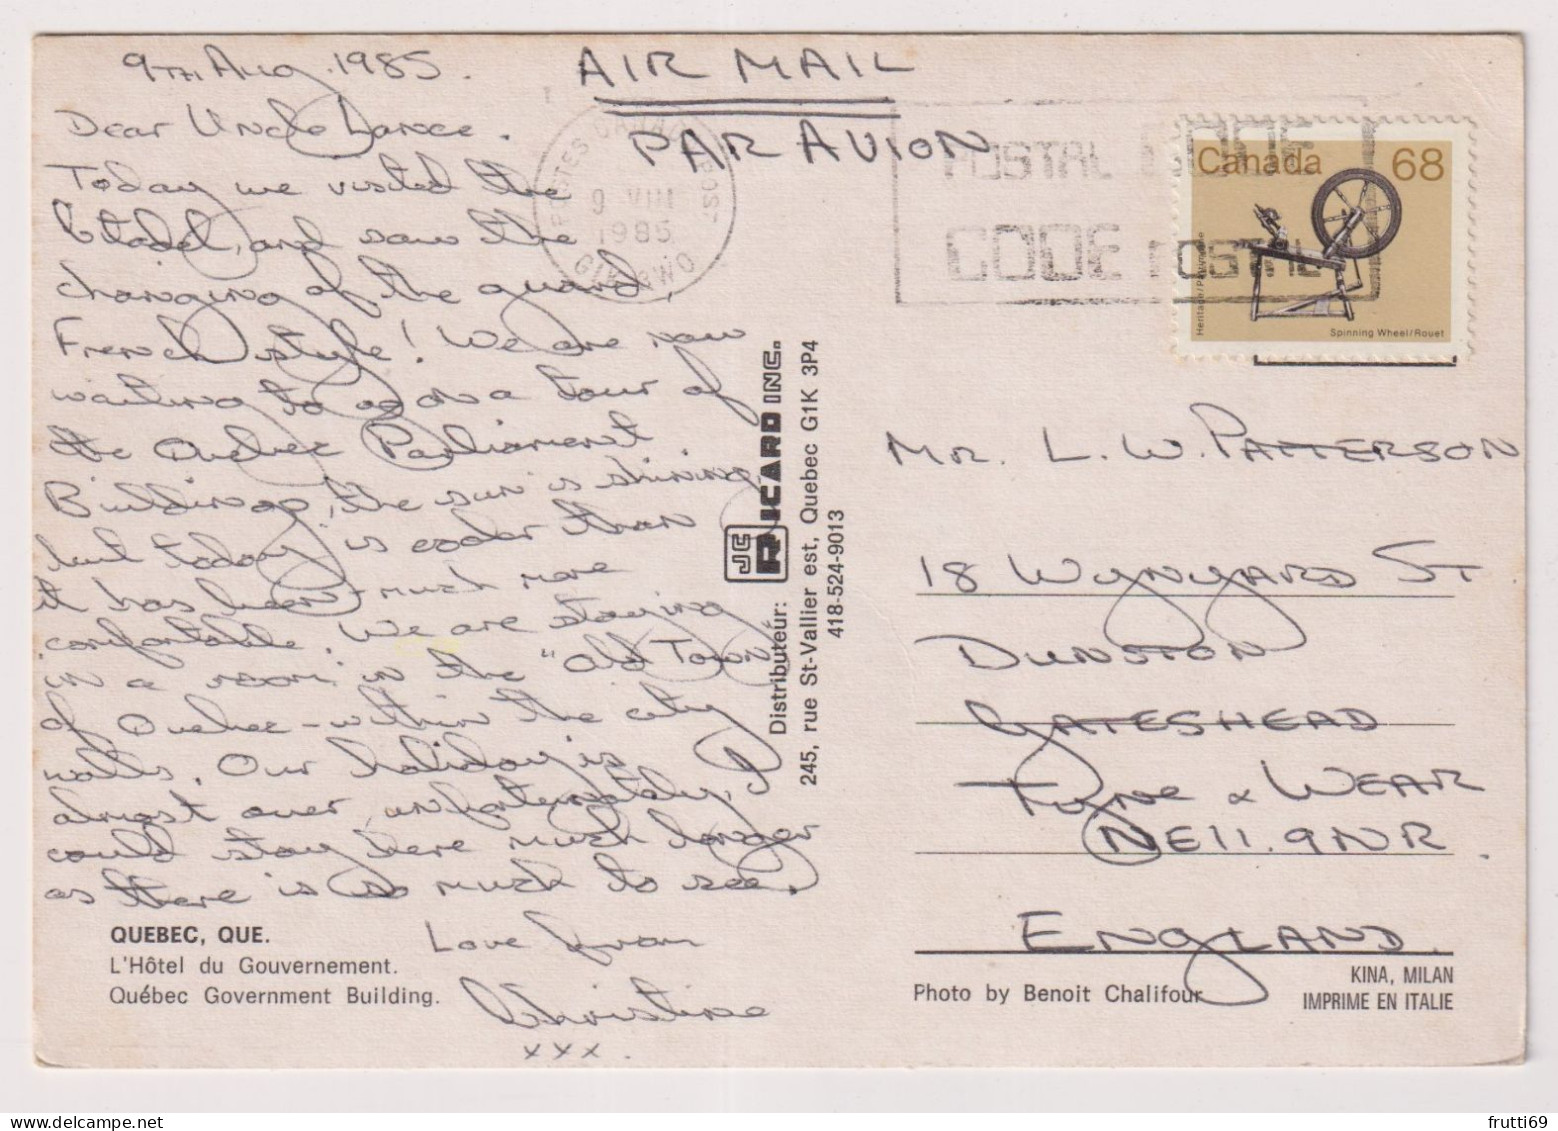 9TH Aug. 1985.
Dear Uncle Lance.
Today we visited the
Citadel, and saw the
changing of the guard,
French style! We are now
waiting to go on a tour of
the Quebec Parliament
Buildings, the sun is shining,
but today is cooler than
it has been - much more
comfortable. We are staying
in a room in the "Old Town"
of Quebec - within the city
walls. Our holiday is
almost over unfortunately, I
could stay here much longer
as there is so much to see.
Love from
Christine
xxx.
QUEBEC, QUE.
L'Hôtel du Gouvernement.
Québec Government Building.
AIR MAIL
PAR AVION
POSTES CANADA
9 VIII
1985
POSTAL CODE
CODE POSTAL
Canada 68
Heritage/Patrimoine
Spinning Wheel/Rouet
Distributeur: JC RICARD INC.
245, rue St-Vallier est, Quebec G1K 3P4
418-524-9013
MR. L. W. PATTERSON
18 WYNYARD ST
DUNSTON
GATESHEAD
TYNE & WEAR
NE11.9NR.
ENGLAND.
Photo by Benoit Chalifour
KINA, MILAN
IMPRIME EN ITALIE
frutti69